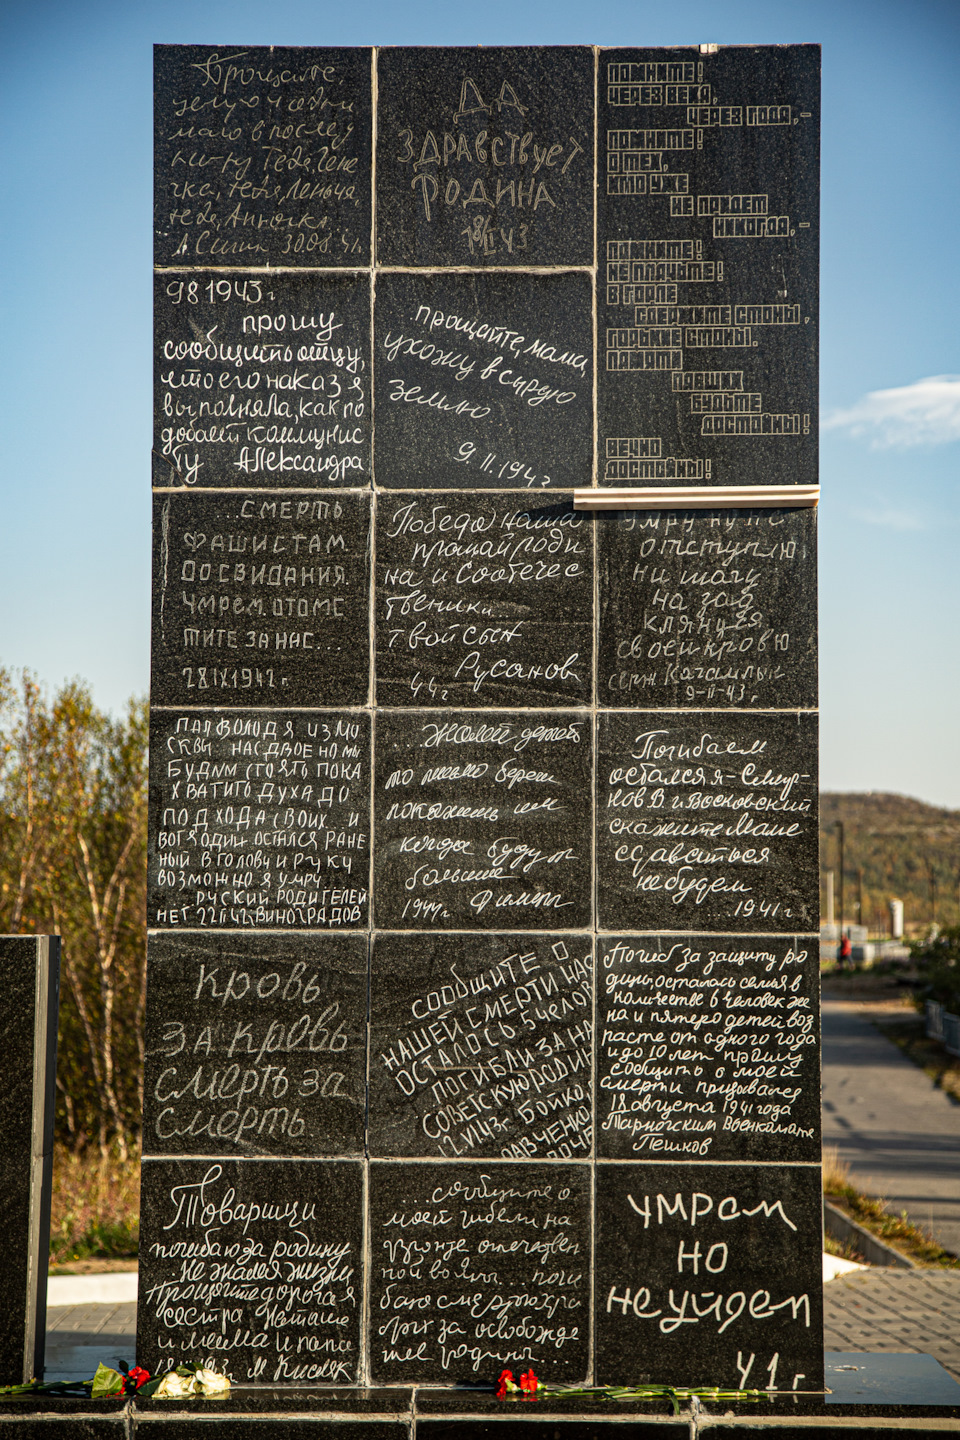 Прощайте,
целую
мало в послед
Тебя, Гене
чка, тебя, Леньчя,
тебя, Анночка.
30.08.41
ДА
ЗДРАВСТВУЕТ
РОДИНА
18/II 43
ПОМНИТЕ!
ЧЕРЕЗ ВЕКА,
ЧЕРЕЗ ГОДА,-
ПОМНИТЕ!
О ТЕХ,
КТО УЖЕ
НЕ ПРИДЕТ
НИКОГДА,-
ПОМНИТЕ!
НЕ ПЛАЧЬТЕ!
В ГОРЛЕ
СДЕРЖИТЕ СТОНЫ,
ГОРЬКИЕ СТОНЫ.
ПАМЯТИ
ПАВШИХ
БУДЬТЕ
ДОСТОЙНЫ!
ВЕЧНО
ДОСТОЙНЫ!
9 8 1943 г
прошу
сообщить отцу,
что его наказ я
выполняла, как по
добает коммунис
ту Александра
прощайте, мама,
ухожу в сырую
землю
9. II. 194
...СМЕРТЬ
ФАШИСТАМ
ДОСВИДАНИЯ.
УМРЕМ. ОТОМС
ТИТЕ ЗА НАС...
28 IX 1942 г.
Победа наша
прощай роди
на и Соотечес
твеники.
твой сын
Русанов
44 г
умру но не
отступлю
ни шагу
на зад
клянусь
своей кровю
серж
9-II-43 г.
ПАЛ ВОЛОДЯ ИЗ МО
СКВЫ НАС ДВОЕ НО МЫ
БУДИМ СТОЯТЬ ПОКА
ХВАТИТ ДУХА ДО
ПОДХОДА СВОИХ И
ВОТ Я ОДИН ОСТАЛСЯ РАНЕ
НЫЙ В ГОЛОВУ И РУКУ
ВОЗМОЖНО Я УМРУ
РУСКИЙ РОДИТЕЛЕЙ
НЕТ 22 II 42 ВИНОГРАДОВ
...Жалей детей
то письмо береги
покажешь им
когда будут
больше
1944 г.
Погибаем
остался я - Смир-
нов В. и Восковский
скажите маме
сдаваться
не будем
...1941 г
Кровь
за кровь
смерть за
смерть
СООБЩИТЕ О
НАШЕЙ СМЕРТИ НАС
ОСТАЛОСЬ 5 ЧЕЛОВ
ПОГИБЛИ ЗА НА
СОВЕТСКУЮ РОДИН
2. VII 43 г. Бойко,
АВЧЕНКО
Погиб за защиту ро
дины, осталась семья в
количестве 6 человек же
на и пятеро детей воз
расте от одного года
и до 10 лет прошу
сообщить о моей
смерти призывался
18 августа 1941 года
Тарногским Военкомате
Пешков
Товарищи
погибаю за родину
не жалея жизни
прощайте дорогая
сестра Наташа
и мама и папа
М Кисляк
...сообщите о
моей гибели на
фронте отечествен
ной войны... поги
баю смертью хра
брых за освобожде
ние родины...
УМРЕМ
НО
НЕ УЙДЕМ
41 г